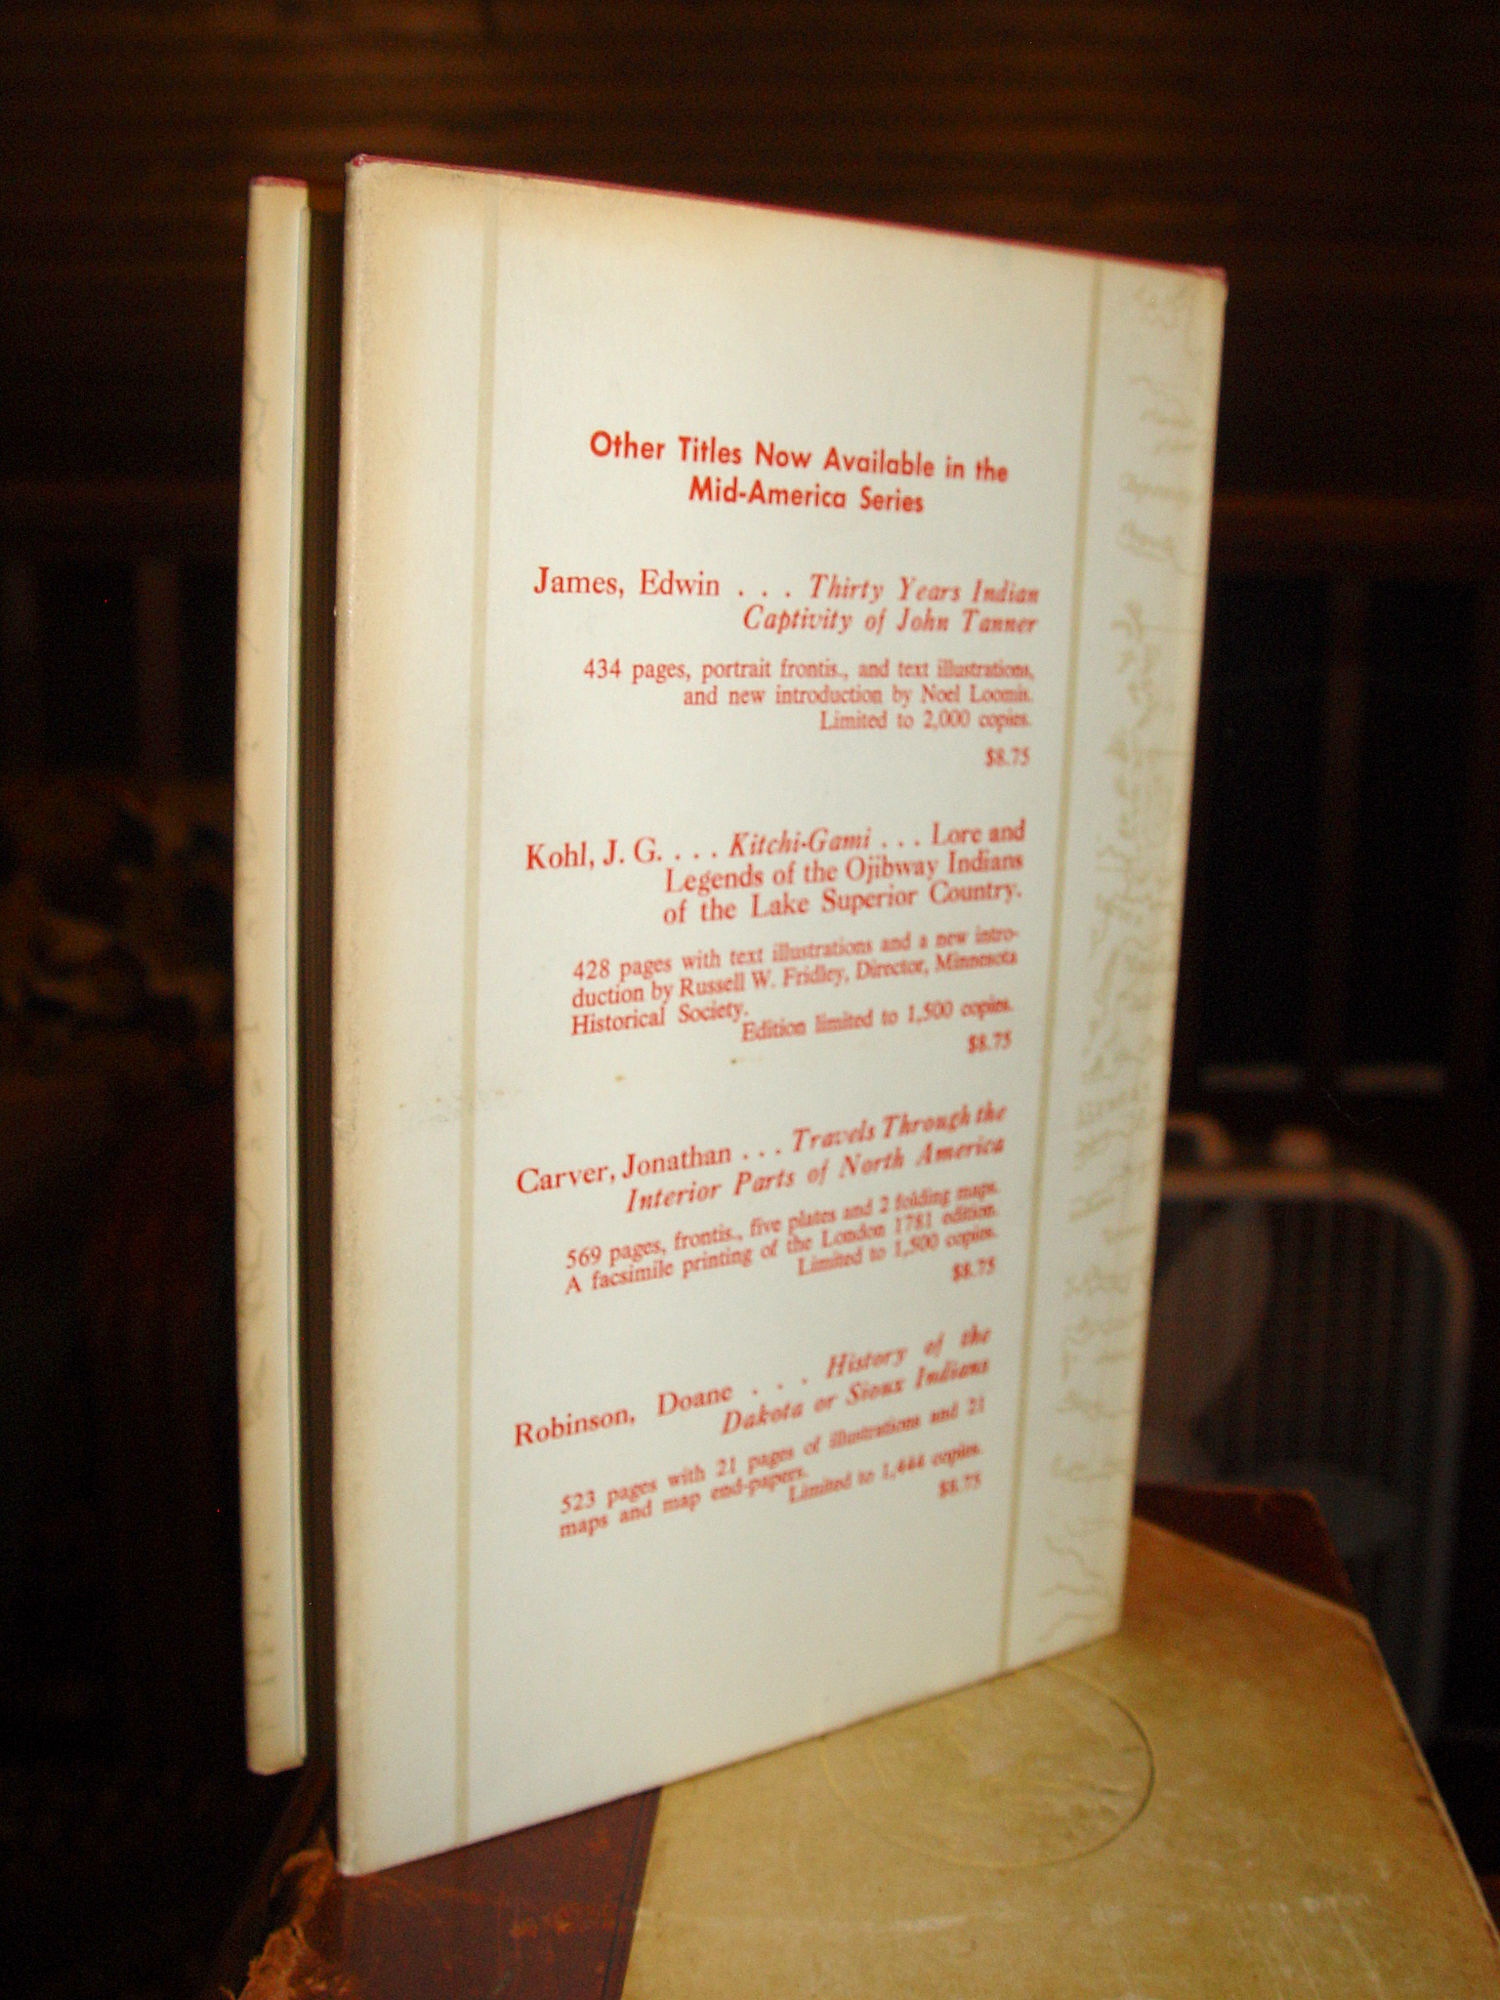 Other Titles Now Available in the
Mid-America Series
James, Edwin . . . Thirty Years Indian
Captivity of John Tanner
434 pages, portrait frontis., and text illustrations,
and new introduction by Noel Loomis.
Limited to 2,000 copies.
$8.75
Kohl, J. G. . . . Kitchi-Gami . . . Lore and
Legends of the Ojibway Indians
of the Lake Superior Country.
428 pages with text illustrations and a new intro-
duction by Russell W. Fridley, Director, Minnesota
Historical Society.
Edition limited to 1,500 copies.
$8.75
Carver, Jonathan . . . Travels Through the
Interior Parts of North America
569 pages, frontis., five plates and 2 folding maps.
A facsimile printing of the London 1781 edition.
Limited to 1,500 copies.
$8.75
Robinson, Doane . . . History of the
Dakota or Sioux Indians
523 pages with 21 pages of illustrations and 21
maps and map end-papers.
Limited to 1,444 copies.
$8.75